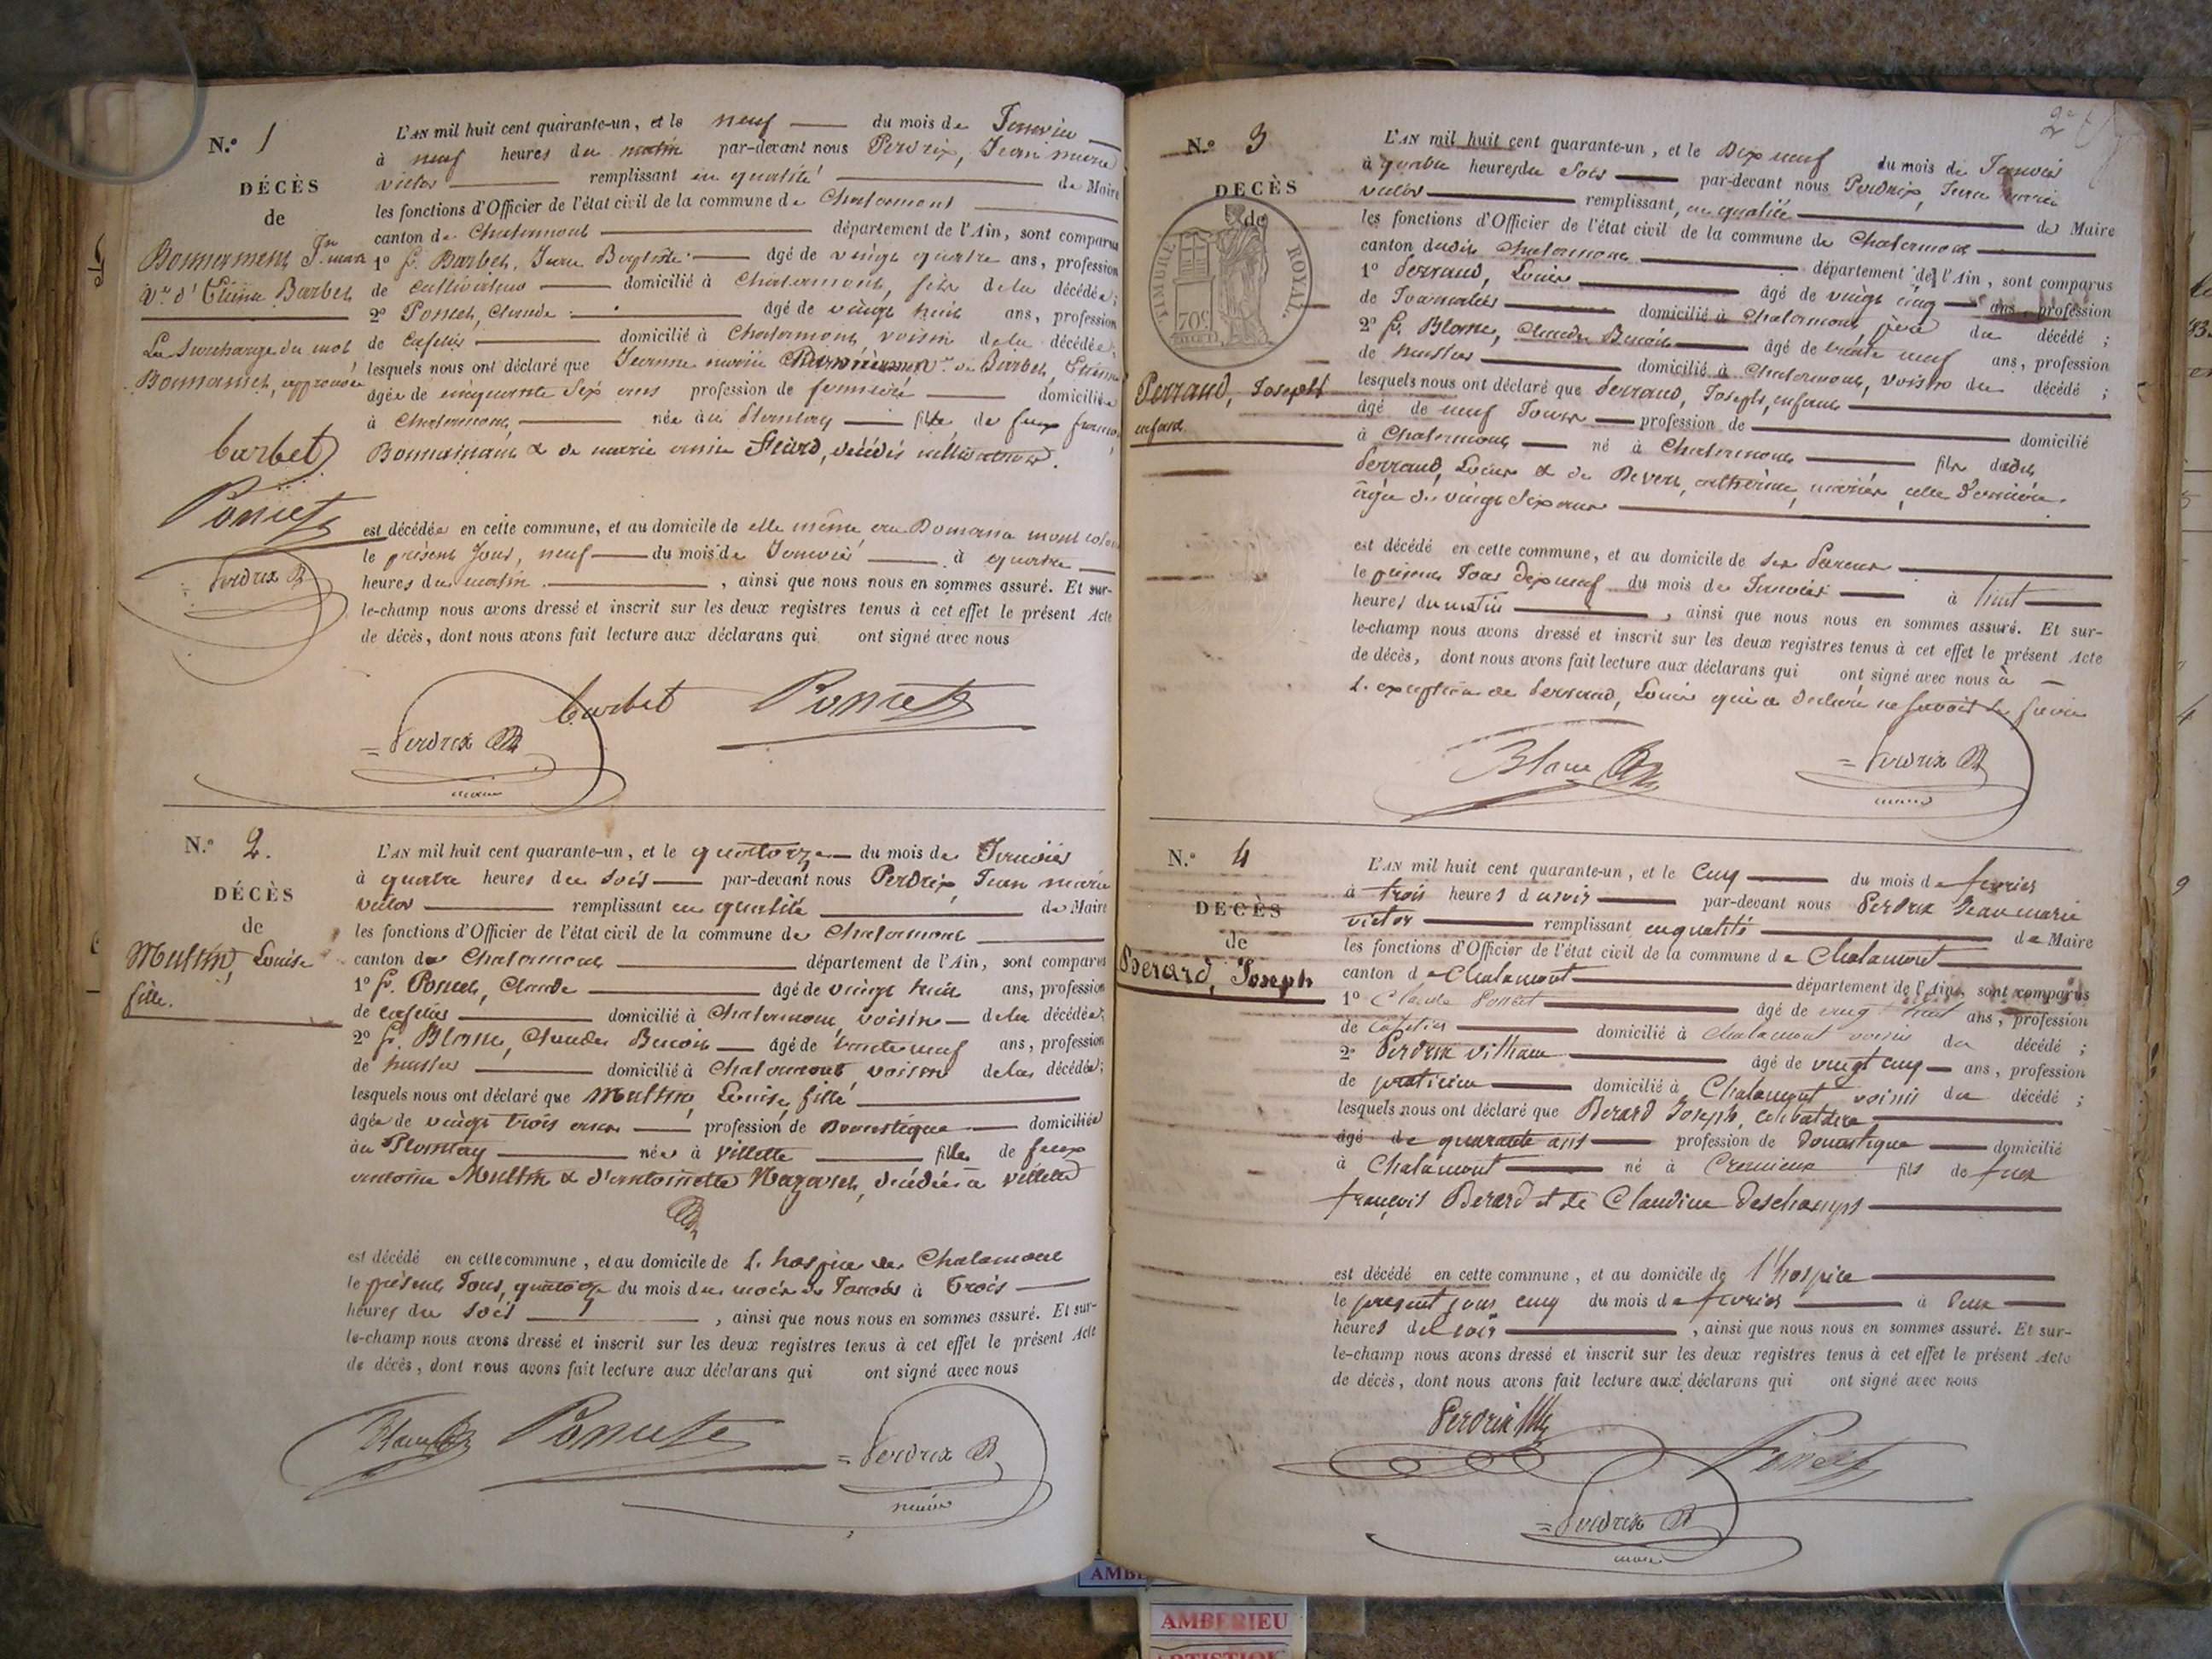 N.º 1
DÉCÈS
de
Barbet
La surcharge du mot
approuvée
Barbet
Poncet
Perdrix
L'AN mil huit cent quarante-un, et le neuf du mois de Janvier
à neuf heures du matin par-devant nous Perdrix, Jean marie
victor remplissant en qualité de Maire
les fonctions d'Officier de l'état civil de la commune de Chalamont
canton de Chalamont département de l'Ain, sont comparus
1º s.r Barbet, Jean Baptiste âgé de vingt quatre ans, profession
de cultivateur domicilié à Chalamont, fils de la décédée;
2º Poncet, Claude âgé de vingt huit ans, profession
de cafetier domicilié à Chalamont, voisin de la décédée;
lesquels nous ont déclaré que Jeanne marie v.e de Barbet, Etienne
âgée de cinquante six ans profession de fermière domiciliée
à Chalamont, née au Plantay fille de feux
et de marie décédés cultivateurs.
est décédée en cette commune, et au domicile de elle même, au Domaine
le présent Jour, neuf du mois de Janvier à quatre
heures du matin, ainsi que nous nous en sommes assuré. Et sur-
le-champ nous avons dressé et inscrit sur les deux registres tenus à cet effet le présent Acte
de décès, dont nous avons fait lecture aux déclarans qui ont signé avec nous
Barbet Poncet
Perdrix
maire
N.º 2.
DÉCÈS
de
Louise
fille.
L'AN mil huit cent quarante-un, et le quatorze du mois de Janvier
à quatre heures du soir par-devant nous Perdrix, Jean marie
victor remplissant en qualité de Maire
les fonctions d'Officier de l'état civil de la commune de Chalamont
canton de Chalamont département de l'Ain, sont comparus
1º s.r Poncet, Claude âgé de vingt huit ans, profession
de cafetier domicilié à Chalamont, voisin de la décédée;
2º s.r Blanc, Claude Benoit âgé de trente neuf ans, profession
de huissier domicilié à Chalamont voisin de la décédée;
lesquels nous ont déclaré que Louise, fille
âgée de vingt trois ans profession de Domestique domiciliée
au Plantay née à Villette fille de feux
antoine & d'antoinette décédés à villette
est décédé en cette commune, et au domicile de L'hospice de Chalamont
le présent Jour, quatorze du mois du mois de Janvier à Trois
heures du soir, ainsi que nous nous en sommes assuré. Et sur-
le-champ nous avons dressé et inscrit sur les deux registres tenus à cet effet le présent Acte
de décès, dont nous avons fait lecture aux déclarans qui ont signé avec nous
Blanc Poncet Perdrix
maire
2e
N.º 3
DECÈS
de
TIMBRE ROYAL
70c
Perraud, Joseph
enfant
L'AN mil huit cent quarante-un, et le Dix neuf du mois de Janvier
à quatre heures du soir par-devant nous Perdrix, Jean marie
victor remplissant, en qualité de Maire
les fonctions d'Officier de l'état civil de la commune de Chalamont
canton dudit Chalamont département de l'Ain, sont comparus
1º Perraud, Louis âgé de vingt cinq ans, profession
de Journalier domicilié à Chalamont, père du décédé;
2º s.r Blanc, Claude Benoit âgé de trente neuf ans, profession
de huissier domicilié à Chalamont, voisin du décédé;
lesquels nous ont déclaré que Perraud, Joseph, enfant
âgé de neuf Jours profession de domicilié
à Chalamont né à Chalamont fils dudit
Perraud, Louis & de catherine, mariés, cette dernière
âgée de vingt six ans
est décédé en cette commune, et au domicile de ses Parens
le présent Jour Dix neuf du mois de Janvier à huit
heures du matin, ainsi que nous nous en sommes assuré. Et sur-
le-champ nous avons dressé et inscrit sur les deux registres tenus à cet effet le présent Acte
de décès, dont nous avons fait lecture aux déclarans qui ont signé avec nous à
L'exception de Perraud, Louis qui a déclaré ne savoir le faire
Blanc Perdrix
maire
N.º 4
DECÈS
de
Berard, Joseph
L'AN mil huit cent quarante-un, et le Cinq du mois de fevrier
à trois heures du soir par-devant nous Perdrix Jean marie
victor remplissant en qualité de Maire
les fonctions d'Officier de l'état civil de la commune de Chalamont
canton de Chalamont département de l'Ain, sont comparus
1º Claude Poncet âgé de vingt huit ans, profession
de Cafetier domicilié à Chalamont voisin du décédé;
2º Perdrix âgé de vingt cinq ans, profession
de praticien domicilié à Chalamont voisin du décédé;
lesquels nous ont déclaré que Berard Joseph, celibataire
âgé de quarante ans profession de Domestique domicilié
à Chalamont né à Cremieux fils de feux
françois Berard et de Claudine Deschamps
est décédé en cette commune, et au domicile de l'hospice
le present jour cinq du mois de fevrier à Deux
heures du soir, ainsi que nous nous en sommes assuré. Et sur-
le-champ nous avons dressé et inscrit sur les deux registres tenus à cet effet le présent Acte
de décès, dont nous avons fait lecture aux déclarans qui ont signé avec nous
Perdrix
Poncet
Perdrix
maire
AMBERIEU